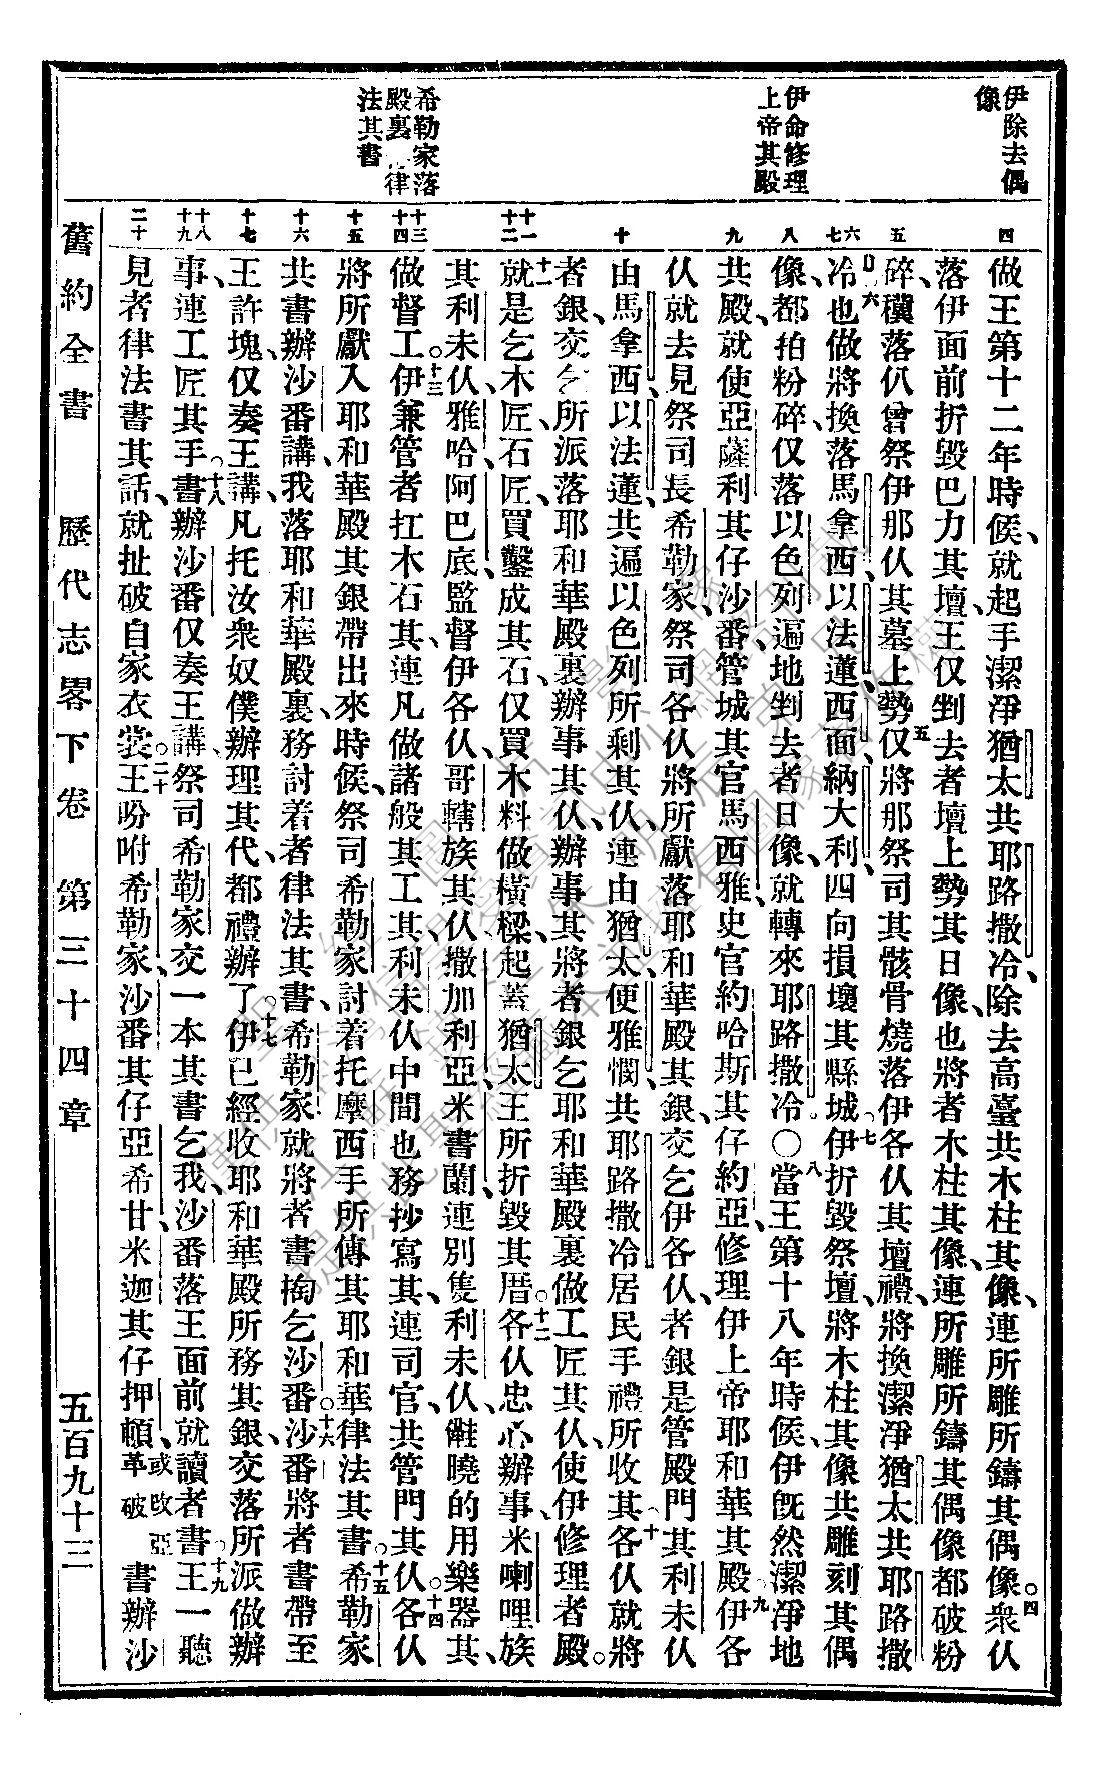 伊除去偶
像
伊命修理
上帝其殿
希勒家落
殿裏 律
法其書
四
五
六
七
八
九
十
十一
十二
十三
十四
十五
十六
十七
十八
十九
二十
做王第十二年時候、就起手潔淨猶太共耶路撒冷、除去高臺共木柱其像、連所雕所鑄其偶像。四衆仈
落伊面前折毀巴力其壇、王仅剉去者壇上勢其日像、也將者木柱其像、連所雕所鑄其偶像都破粉
碎、𥻵落仈曾祭伊那仈其墓上勢五仅將那祭司其骸骨燒落伊各仈其壇禮、將換潔淨猶太共耶路撒
冷六也做將換落馬拿西、以法蓮、西面、納大利、四向損壞其縣城七伊折毀祭壇、將木柱其像共雕刻其偶
像、都拍粉碎、仅落以色列遍地剉去者日像、就轉來耶路撒冷。〇八當王第十八年時候、伊旣然潔淨地
共殿、就使亞薩利其仔沙番、管城其官馬西雅、史官約哈斯其仔約亞、修理伊上帝耶和華其殿九伊各
仈就去見祭司長希勒家、祭司各仈將所獻落耶和華殿其銀、交乞伊各仈、者銀是管殿門其利未仈
由馬拿西、以法蓮、共遍以色列所剩其仈、連由猶太、便雅憫、共耶路撒冷居民手禮所收其十各仈就將
者銀、交乞所派落耶和華殿裏辦事其仈、辦事其將者銀乞耶和華殿裏做工匠其仈、使伊修理者殿。
十一就是乞木匠、石匠、買鑿成其石、仅買木料做橫樑、起蓋猶太王所折毀其厝。十二各仈忠心辦事、米喇哩族
其利未仈、雅哈、阿巴底、監督伊各仈、哥轄族其仈撒加利亞、米書蘭、連別隻利未仈、㑚曉的用樂器其、
做督工。十三伊兼管者扛木石其、連凡做諸般其工其、利未仈中間也務抄寫其、連司官、共管門其仈。十四各仈
將所獻入耶和華殿其銀帶出來時候、祭司希勒家討着托摩西手所傳其耶和華律法其書。十五希勒家
共書辦沙番講、我落耶和華殿裏、務討着者律法其書、希勒家就將者書掏乞沙番。十六沙番將者書帶至
王許塊、仅奏王講、凡托汝衆奴僕辦理其代、都禮辦了十七伊已經收耶和華殿所務其銀、交落所派做辦
事、連工匠其手。十八書辦沙番仅奏王講、祭司希勒家交一本其書乞我、沙番落王面前就讀者書十九王一聽
見者律法書其話、就扯破自家衣裳二十王吩咐希勒家、沙番其仔亞希甘、米迦其仔押頓或改亞革破書辦沙
舊約全書 歷代志畧下卷 第三十四章 五百九十三